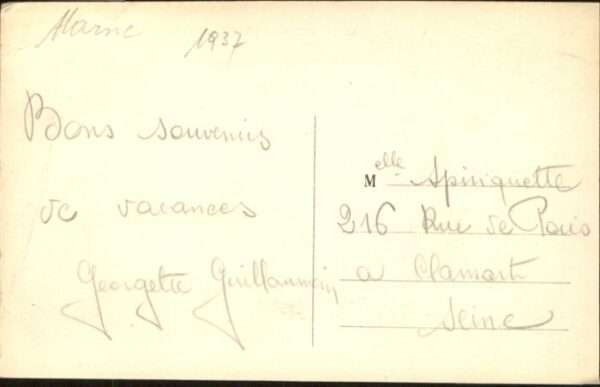 Marne 1937
Bons souvenirs
de vacances
Georgette Guillaumin
Melle Spiriquette
216 Rue de Paris
a Clamart
Seine